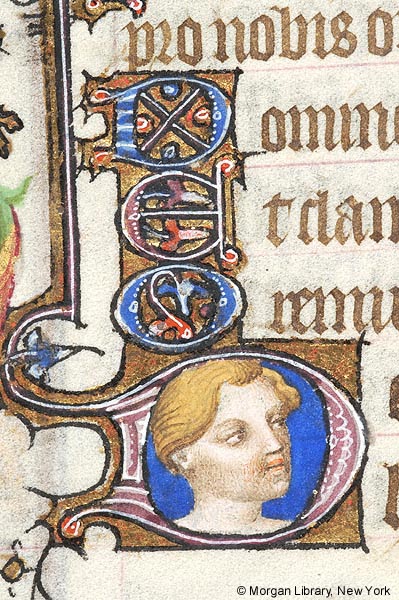 pro nobis o
Domin
Et clam
Oremu
D
© Morgan Library, New York